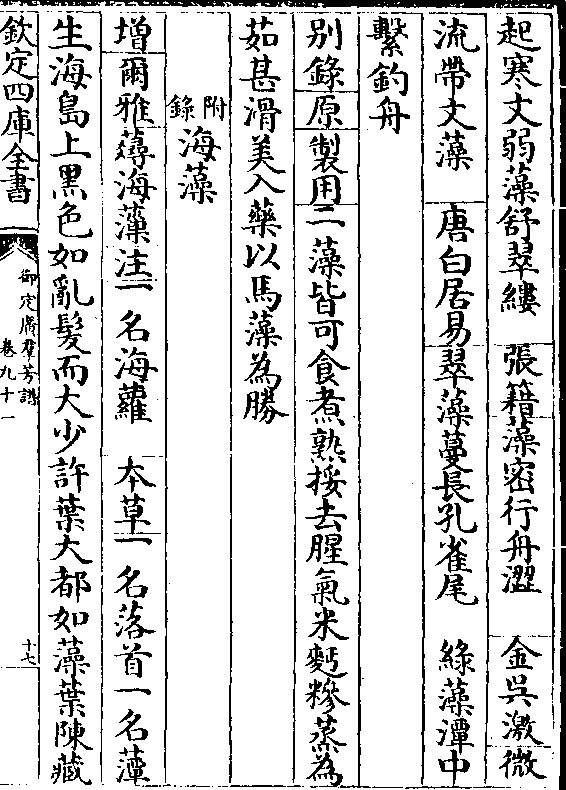 起寒文弱藻舒翠縷　張籍藻密行舟澀　金吳激微
流帶文藻　唐白居易翠藻蔓長孔雀尾　綠藻潭中
繫釣舟
别錄原製用二藻皆可食煮熟挼去腥氣米麪糝蒸為
茹甚滑美入藥以馬藻為勝
附錄海藻
增爾雅薚海藻注一名海蘿　本草一名落首一名薚
生海島上黑色如亂髮而大少許葉大都如藻葉陳藏
欽定四庫全書
御定廣羣芳譜
卷九十一
十七